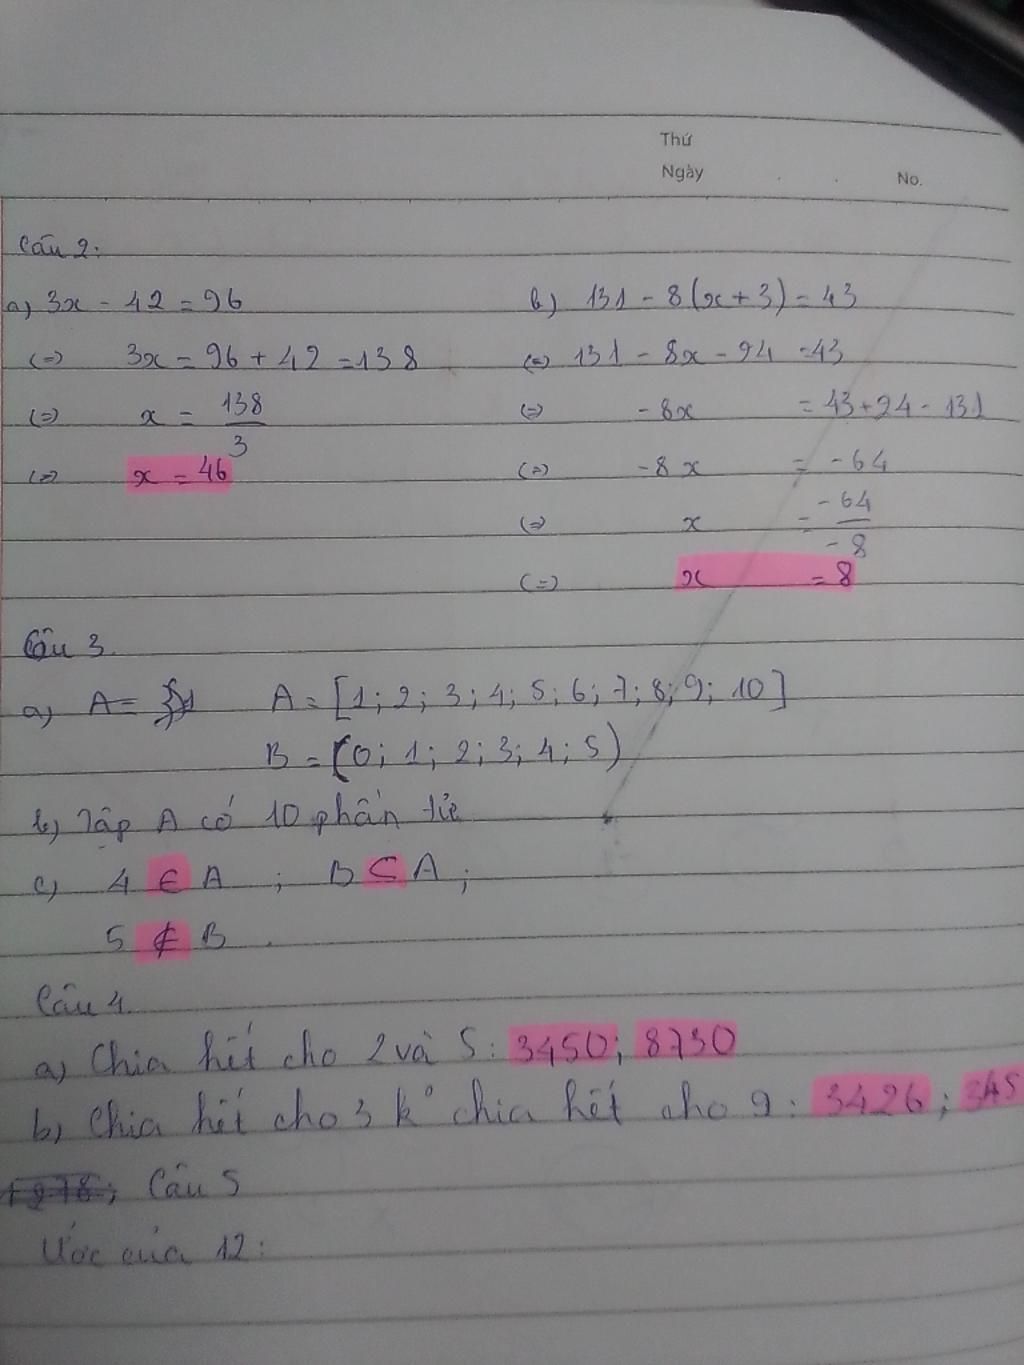 Thứ
Ngày No.
Câu 2:
a) 3x - 42 = 96
(=) 3x = 96 + 42 = 138
(=) x = 138/3
(=) x = 46
b) 131 - 8(x + 3) = 43
(=) 131 - 8x - 24 = 43
(=) -8x = 43 + 24 - 131
(=) -8x = -64
(=) x = -64/-8
(=) x = 8
Câu 3.
a) A = A = [1; 2; 3; 4; 5; 6; 7; 8; 9; 10]
B = (0; 1; 2; 3; 4; 5)
b) Tập A có 10 phần tử
c) 4 ∈ A ; B ⊂ A ;
5 ∉ B .
Câu 4.
a) Chia hết cho 2 và 5: 3450; 8730
b) Chia hết cho 3 k° chia hết cho 9: 3426; 345
Câu 5
Ước của 12: